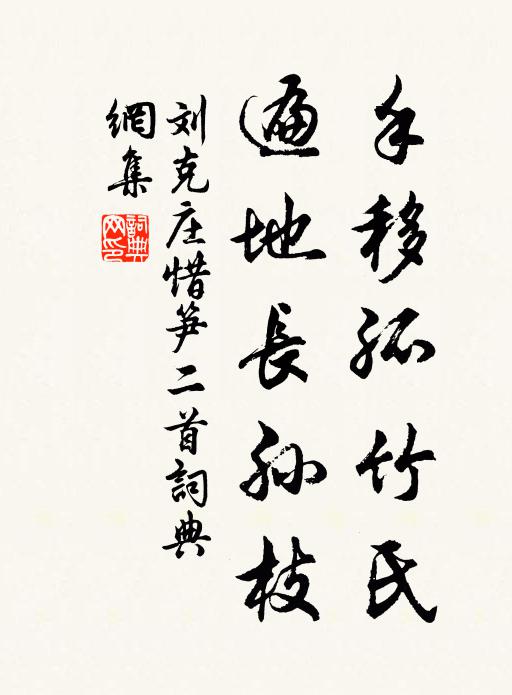 手移孤竹氏
遍地長孙枝
刘克庄惜笋二首詞典
網集
詞典
网印